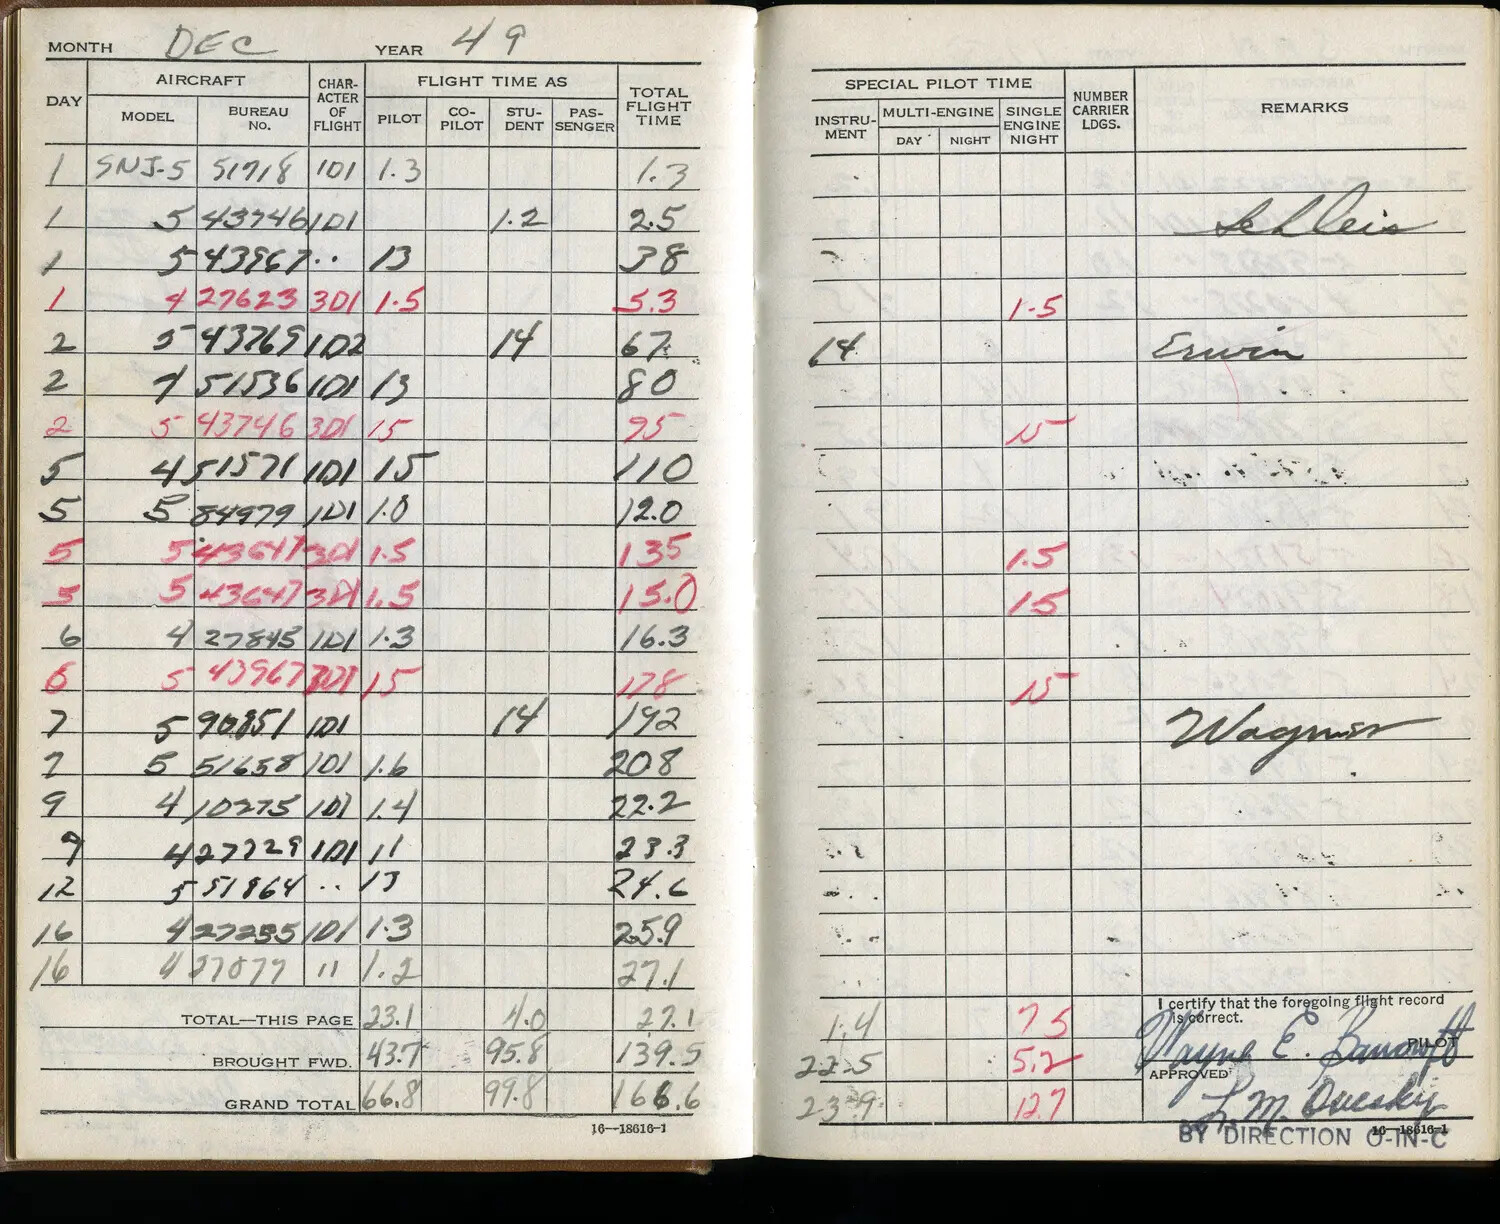 MONTH DEC YEAR 49
DAY AIRCRAFT CHARACTER OF FLIGHT FLIGHT TIME AS TOTAL FLIGHT TIME
MODEL BUREAU NO. PILOT CO-PILOT STU-DENT PAS-SENGER
1 SNJ-5 51718 1D1 1.3 1.3
1 5 43746 1D1 1.2 2.5
1 5 43967 .. 13 38
1 4 27623 3D1 1.5 5.3
2 5 43769 1D2 14 67
2 4 51536 1D1 13 80
2 5 43746 3D1 15 95
5 4 51571 1D1 15 110
5 5 84979 1D1 1.0 12.0
5 5 43647 3D1 1.5 135
5 5 43647 3D1 1.5 15.0
6 4 27845 1D1 1.3 16.3
6 5 43967 3D1 15 178
7 5 90851 1D1 14 192
7 5 51658 1D1 1.6 208
9 4 10275 1D1 1.4 22.2
9 4 27729 1D1 11 23.3
12 5 51864 .. 13 24.6
16 4 27235 1D1 1.3 25.9
16 4 27077 11 1.2 27.1
TOTAL—THIS PAGE 23.1 4.0 27.1
BROUGHT FWD. 43.7 95.8 139.5
GRAND TOTAL 66.8 99.8 166.6
16—18616-1
SPECIAL PILOT TIME NUMBER CARRIER LDGS. REMARKS
INSTRU-MENT MULTI-ENGINE SINGLE ENGINE NIGHT
DAY NIGHT
Schleis
1.5
14 Erwin
15
1.5
15
15
Wagner
I certify that the foregoing flight record
is correct.
1.4 75
Wayne E. Bancroft
PILOT
22.5 5.2
APPROVED
23.9 12.7
L. M.
16—18616-1
BY DIRECTION O-IN-C